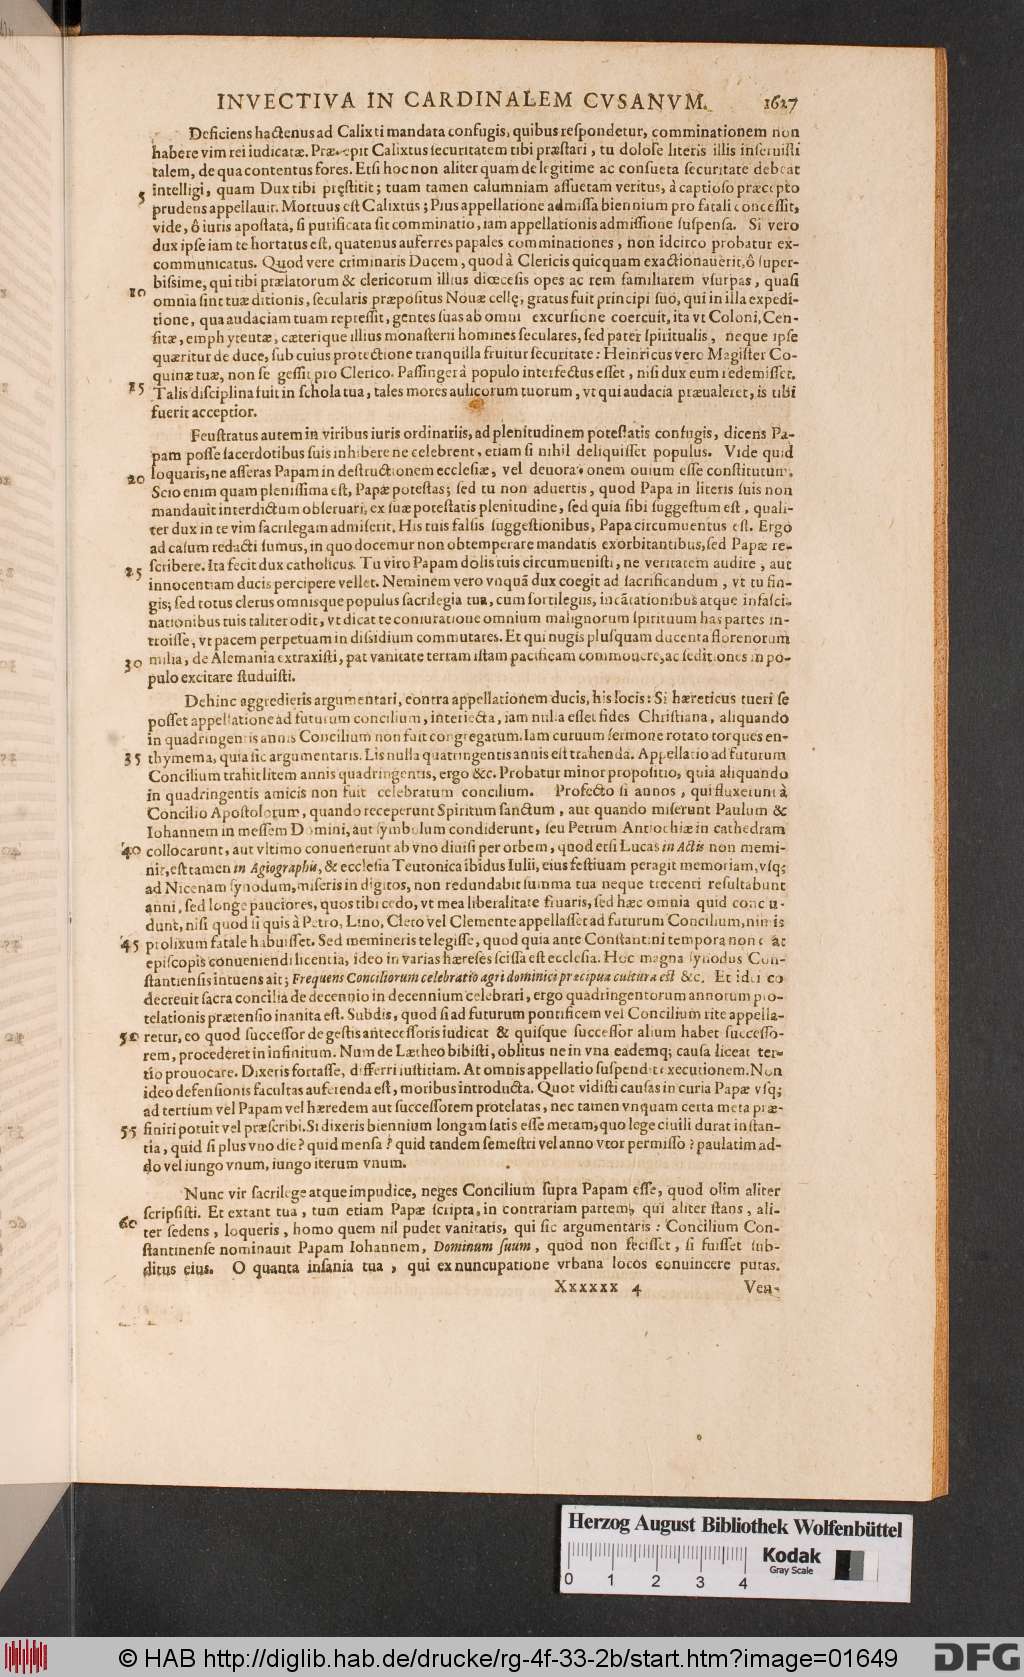 INVECTIVA IN CARDINALEM CVSANVM. 1627
Deficiens hactenus ad Calixti mandata confugis, quibus respondetur, comminationem non
habere vim rei iudicatæ. Præcepit Calixtus securitatem tibi præstari, tu dolose literis illis inseruisti
talem, de qua contentus fores. Etsi hoc non aliter quam de legitime ac consueta securitate debeat
5 intelligi, quam Dux tibi pręstitit; tuam tamen calumniam assuetam veritus, à captioso præcepto
prudens appellauit. Mortuus est Calixtus; Pius appellatione admissa biennium pro fatali concessit,
vide, ô iuris apostata, si purificata sit comminatio, iam appellationis admissione suspensa. Si vero
dux ipse iam te hortatus est, quatenus auferres papales comminationes, non idcirco probatur ex-
communicatus. Quod vere criminaris Ducem, quod à Clericis quicquam exactionauerit, ô super-
10 bissime, qui tibi prælatorum & clericorum illius diœcesis opes ac rem familiarem vsurpas, quasi
omnia sint tuæ ditionis, secularis præpositus Nouæ cellę, gratus fuit principi suo, qui in illa expedi-
tione, qua audaciam tuam repressit, gentes suas ab omni excursione coercuit, ita vt Coloni, Cen-
sitæ, emphyteutæ, cæterique illius monasterii homines seculares, sed pater spiritualis, neque ipse
quæritur de duce, sub cuius protectione tranquilla fruitur securitate: Heinricus vero Magister Co-
quinæ tuæ, non se gessit pro Clerico. Passinger à populo interfectus esset, nisi dux eum redemisset.
15 Talis disciplina fuit in schola tua, tales mores aulicorum tuorum, vt qui audacia præualeret, is tibi
fuerit acceptior.
Feustratus autem in viribus iuris ordinariis, ad plenitudinem potestatis confugis, dicens Pa-
pam posse sacerdotibus suis inhibere ne celebrent, etiam si nihil deliquisset populus. Vide quid
20 loquaris, ne asseras Papam in destructionem ecclesiæ, vel deuorationem ouium esse constitutum.
Scio enim quam plenissima est, Papæ potestas; sed tu non aduertis, quod Papa in literis suis non
mandauit interdictum obseruari, ex suæ potestatis plenitudine, sed quia sibi suggestum est, quali-
ter dux in te vim sacrilegam admiserit. His tuis falsis suggestionibus, Papa circumuentus est. Ergo
ad casum redacti sumus, in quo docemur non obtemperare mandatis exorbitantibus, sed Papæ re-
25 scribere. Ita fecit dux catholicus. Tu viro Papam dolis tuis circumuenisti, ne veritatem audire, aut
innocentiam ducis percipere vellet. Neminem vero vnquā dux coegit ad sacrificandum, vt tu fin-
gis; sed totus clerus omnisque populus sacrilegia tua, cum sortilegiis, incātationibus atque infasci-
nationibus tuis taliter odit, vt dicat te coniuratione omnium malignorum spirituum has partes in-
troisse, vt pacem perpetuam in dissidium commutares. Et qui nugis plusquam ducenta florenorum
30 milia, de Alemania extraxisti, pat vanitate terram istam pacificam commouere, ac seditiones in po-
pulo excitare studuisti.
Dehinc aggredieris argumentari, contra appellationem ducis, his locis: Si hæreticus tueri se
posset appellatione ad futurum concilium, interiecta, iam nulla esset fides Christiana, aliquando
in quadringentis annis Concilium non fuit congregatum. Iam curuum sermone rotato torques en-
35 thymema, quia sic argumentaris. Lis nulla quatringentis annis est trahenda. Appellatio ad futurum
Concilium trahit litem annis quadringentis, ergo &c. Probatur minor propositio, quia aliquando
in quadringentis amicis non fuit celebratum concilium. Profecto si annos, qui fluxerunt à
Concilio Apostolorum, quando receperunt Spiritum sanctum, aut quando miserunt Paulum &
Iohannem in messem Domini, aut symbolum condiderunt, seu Petrum Antiochiæ in cathedram
40 collocarunt, aut vltimo conuenerunt ab vno diuisi per orbem, quod etsi Lucas in Actis non memi-
nit, est tamen in Agiographis, & ecclesia Teutonica ibidus Iulii, eius festiuam peragit memoriam, vsq;
ad Nicenam synodum, miseris in digitos, non redundabit summa tua neque trecenti resultabunt
anni, sed longe pauciores, quos tibi cedo, vt mea liberalitate fruaris, sed hæc omnia quid conclu-
dunt, nisi quod si quis à Petro, Lino, Cleto vel Clemente appellasset ad futurum Concilium, nimis
45 prolixum fatale habuisset. Sed memineris te legisse, quod quia ante Constantini tempora non erat
episcopis conueniendi licentia, ideo in varias hæreses scissa est ecclesia. Hoc magna synodus Con-
stantiensis intuens ait; Frequens Conciliorum celebratio agri dominici præcipua cultura est &c. Et ideo
decreuit sacra concilia de decennio in decennium celebrari, ergo quadringentorum annorum pro-
telationis prætensio inanita est. Subdis, quod si ad futurum pontificem vel Concilium rite appella-
50 retur, eo quod successor de gestis antecessoris iudicat & quisque successor alium habet successo-
rem, procederet in infinitum. Num de Lætheo bibisti, oblitus ne in vna eademq; causa liceat ter-
tio prouocare. Dixeris fortasse, differri iustitiam. At omnis appellatio suspendit executionem. Non
ideo defensionis facultas auferenda est, moribus introducta. Quot vidisti causas in curia Papæ vsq;
ad tertium vel Papam vel hæredem aut successorem protelatas, nec tamen vnquam certa meta præ-
55 finiri potuit vel præscribi. Si dixeris biennium longam satis esse metam, quo lege ciuili durat instan-
tia, quid si plus vno die? quid mensa? quid tandem semestri vel anno vtor permisso? paulatim ad-
do vel iungo vnum, iungo iterum vnum.
Nunc vir sacrilege atque impudice, neges Concilium supra Papam esse, quod olim aliter
scripsisti. Et extant tua, tum etiam Papæ scripta, in contrariam partem, qui aliter stans, ali-
60 ter sedens, loqueris, homo quem nil pudet vanitatis, qui sic argumentaris: Concilium Con-
stantinense nominauit Papam Iohannem, Dominum suum, quod non fecisset, si fuisset sub-
ditus eius. O quanta insania tua, qui ex nuncupatione vrbana locos conuincere putas.
Xxxxxx 4 Ven-
Herzog August Bibliothek Wolfenbüttel
Kodak
Gray Scale
0 1 2 3 4
© HAB http://diglib.hab.de/drucke/rg-4f-33-2b/start.htm?image=01649
DFG